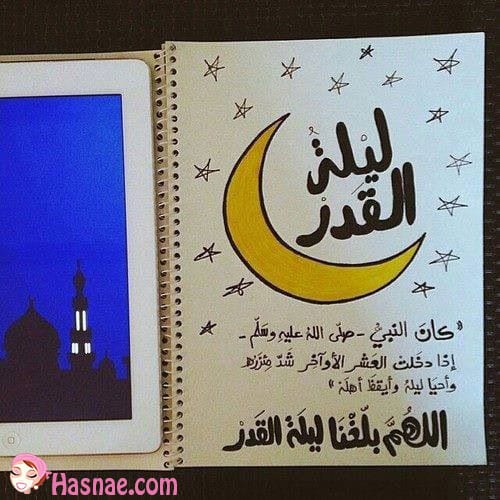 ليْلةُ
القَدْر
« كان النبيُّ - صلّى اللهُ عليهِ وسلّم -
إذا دخَلتْ العَشْر الأوآخر شَدَّ مِئزرهُ
وأحيَا ليلهُ وأيقظَ أهلهُ »
اللهُمَّ بلّغْنَا ليلَة القَدَر
Hasnae.com